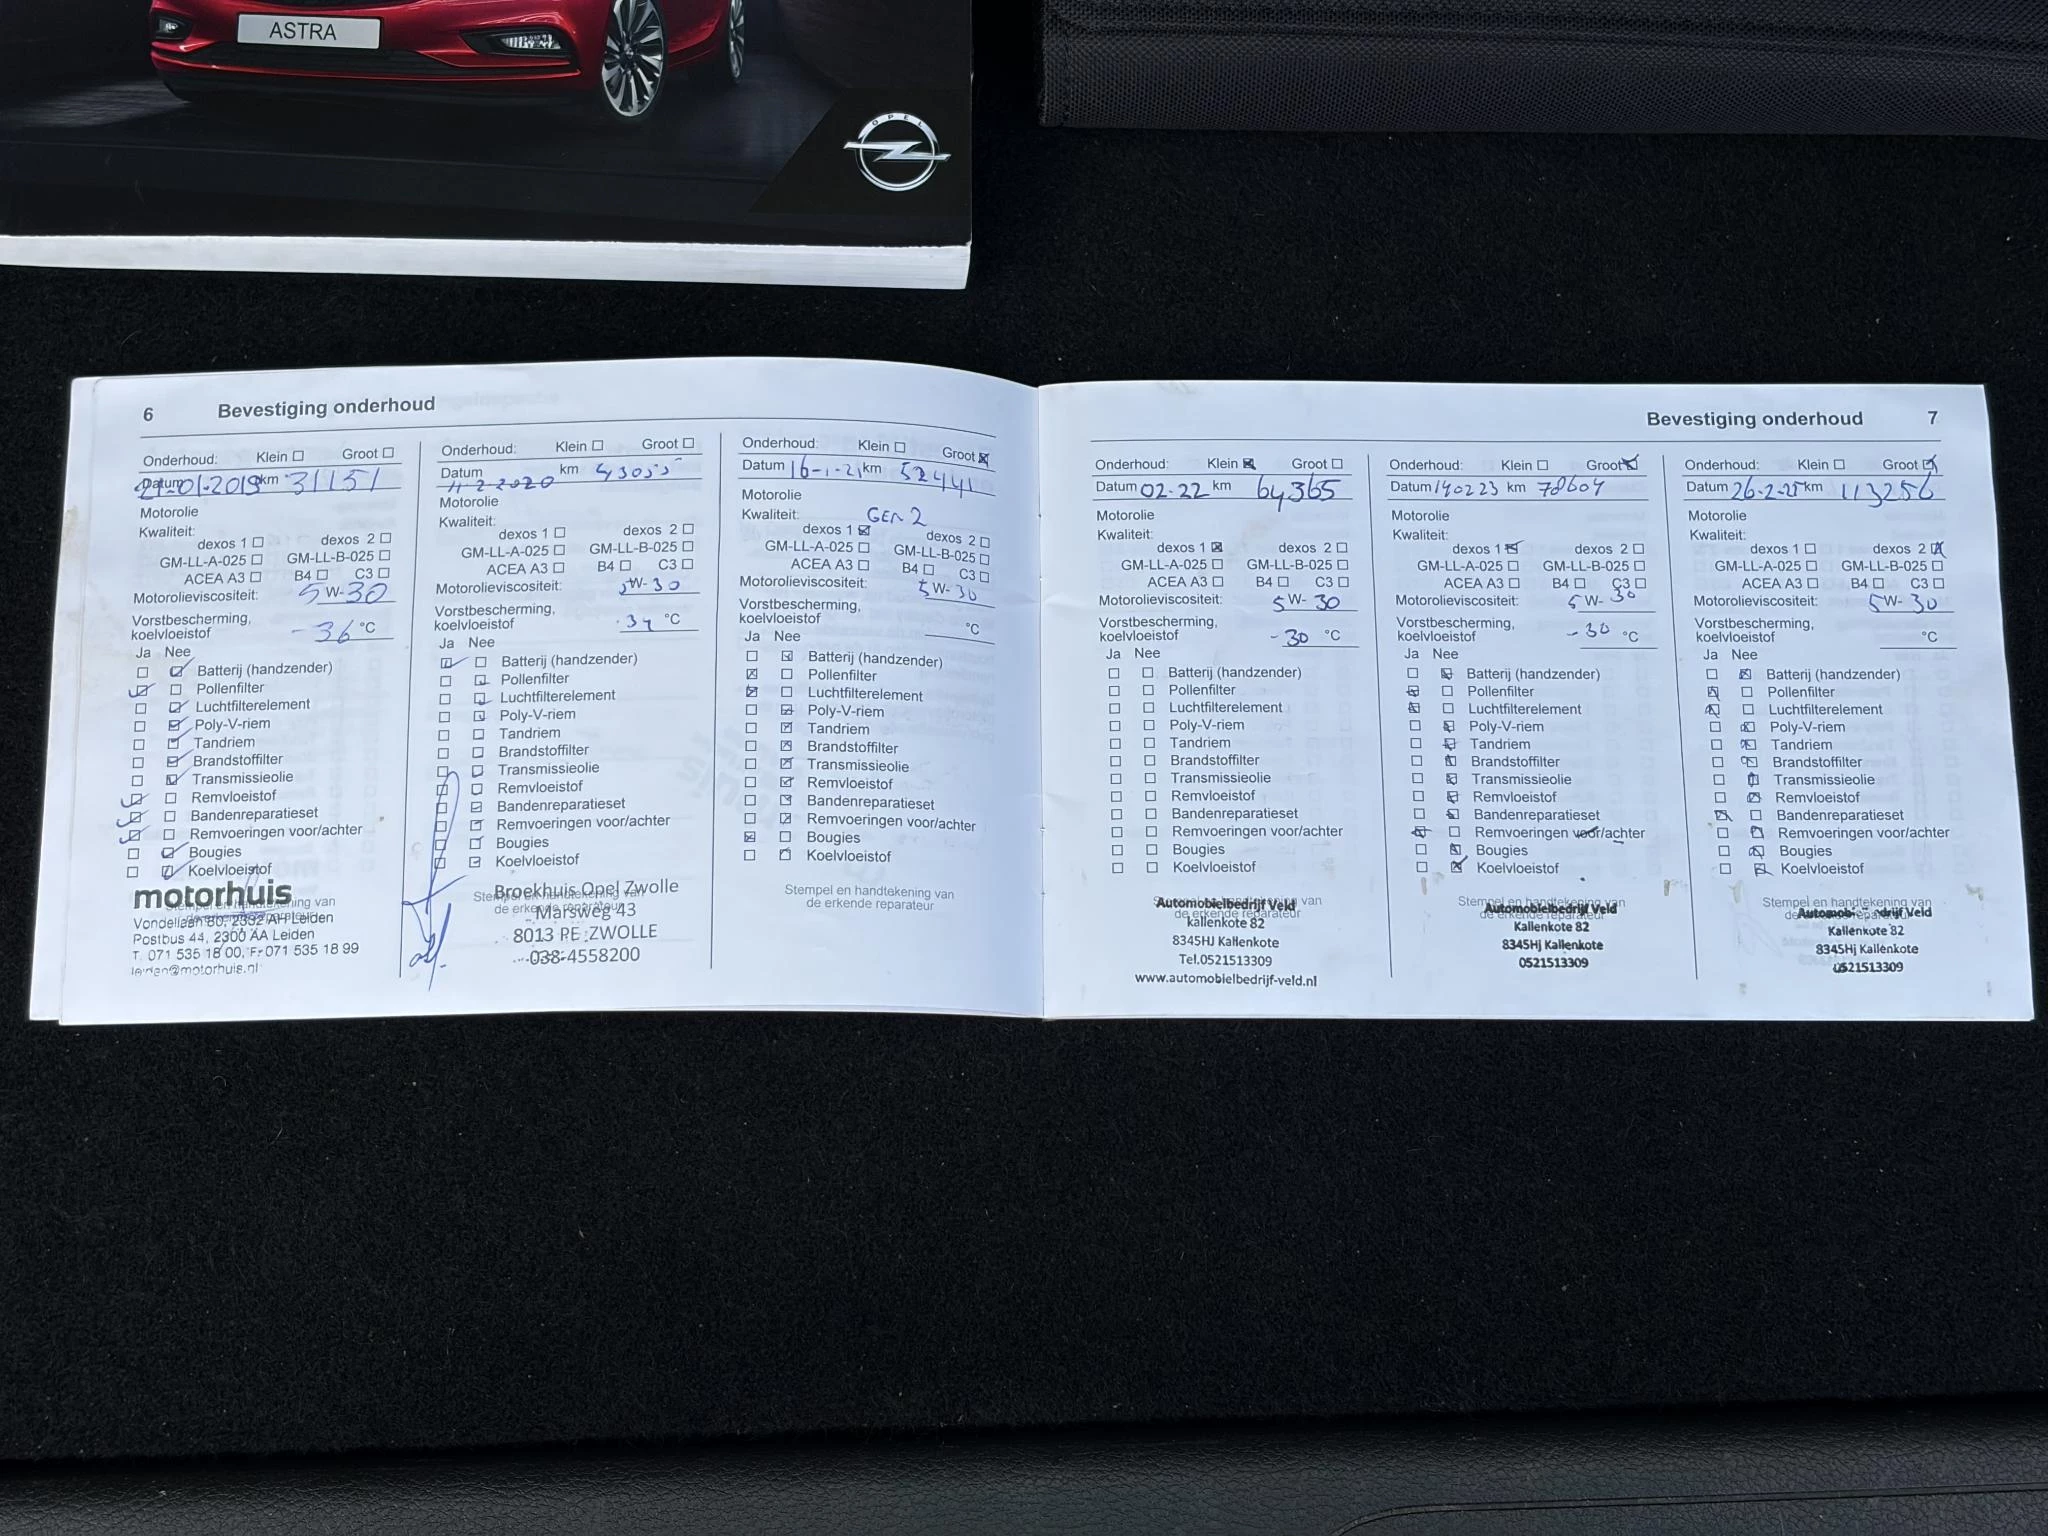 ASTRA
OPEL
6 Bevestiging onderhoud
Onderhoud: Klein Groot
Datum 21-01-2019 km 31151
Motorolie
Kwaliteit:
dexos 1 dexos 2
GM-LL-A-025 GM-LL-B-025
ACEA A3 B4 C3
Motorolieviscositeit: 5W-30
Vorstbescherming,
koelvloeistof -36 °C
Ja Nee
Batterij (handzender)
Pollenfilter
Luchtfilterelement
Poly-V-riem
Tandriem
Brandstoffilter
Transmissieolie
Remvloeistof
Bandenreparatieset
Remvoeringen voor/achter
Bougies
Koelvloeistof
motorhuis
Stempel en handtekening van
de erkende reparateur
Vondellaan 80, 2332 AH Leiden
Postbus 44, 2300 AA Leiden
T. 071 535 18 00, F. 071 535 18 99
leiden@motorhuis.nl
Onderhoud: Klein Groot
Datum 11-2-2020 km 43055
Motorolie
Kwaliteit:
dexos 1 dexos 2
GM-LL-A-025 GM-LL-B-025
ACEA A3 B4 C3
Motorolieviscositeit: 5W-30
Vorstbescherming,
koelvloeistof °C
Ja Nee
Batterij (handzender)
Pollenfilter
Luchtfilterelement
Poly-V-riem
Tandriem
Brandstoffilter
Transmissieolie
Remvloeistof
Bandenreparatieset
Remvoeringen voor/achter
Bougies
Koelvloeistof
Stempel en handtekening van
de erkende reparateur
Broekhuis Opel Zwolle
Marsweg 43
8013 PE ZWOLLE
038-4558200
Onderhoud: Klein Groot
Datum 16-1-21 km 52441
Motorolie
Kwaliteit: GEN 2
dexos 1 dexos 2
GM-LL-A-025 GM-LL-B-025
ACEA A3 B4 C3
Motorolieviscositeit: 5W-30
Vorstbescherming,
koelvloeistof °C
Ja Nee
Batterij (handzender)
Pollenfilter
Luchtfilterelement
Poly-V-riem
Tandriem
Brandstoffilter
Transmissieolie
Remvloeistof
Bandenreparatieset
Remvoeringen voor/achter
Bougies
Koelvloeistof
Stempel en handtekening van
de erkende reparateur
Bevestiging onderhoud 7
Onderhoud: Klein Groot
Datum 02-22 km 64365
Motorolie
Kwaliteit:
dexos 1 dexos 2
GM-LL-A-025 GM-LL-B-025
ACEA A3 B4 C3
Motorolieviscositeit: 5W-30
Vorstbescherming,
koelvloeistof -30 °C
Ja Nee
Batterij (handzender)
Pollenfilter
Luchtfilterelement
Poly-V-riem
Tandriem
Brandstoffilter
Transmissieolie
Remvloeistof
Bandenreparatieset
Remvoeringen voor/achter
Bougies
Koelvloeistof
Stempel en handtekening van
de erkende reparateur
Automobielbedrijf Veld
kallenkote 82
8345HJ Kallenkote
Tel.0521513309
www.automobielbedrijf-veld.nl
Onderhoud: Klein Groot
Datum 140223 km 78604
Motorolie
Kwaliteit:
dexos 1 dexos 2
GM-LL-A-025 GM-LL-B-025
ACEA A3 B4 C3
Motorolieviscositeit: 5W-30
Vorstbescherming,
koelvloeistof -30 °C
Ja Nee
Batterij (handzender)
Pollenfilter
Luchtfilterelement
Poly-V-riem
Tandriem
Brandstoffilter
Transmissieolie
Remvloeistof
Bandenreparatieset
Remvoeringen voor/achter
Bougies
Koelvloeistof
Stempel en handtekening van
de erkende reparateur
Automobielbedrijf Veld
Kallenkote 82
8345Hj Kallenkote
0521513309
Onderhoud: Klein Groot
Datum 26-2-25 km 113256
Motorolie
Kwaliteit:
dexos 1 dexos 2
GM-LL-A-025 GM-LL-B-025
ACEA A3 B4 C3
Motorolieviscositeit: 5W-30
Vorstbescherming,
koelvloeistof °C
Ja Nee
Batterij (handzender)
Pollenfilter
Luchtfilterelement
Poly-V-riem
Tandriem
Brandstoffilter
Transmissieolie
Remvloeistof
Bandenreparatieset
Remvoeringen voor/achter
Bougies
Koelvloeistof
Stempel en handtekening van
de erkende reparateur
Automobielbedrijf Veld
Kallenkote 82
8345Hj Kallenkote
0521513309